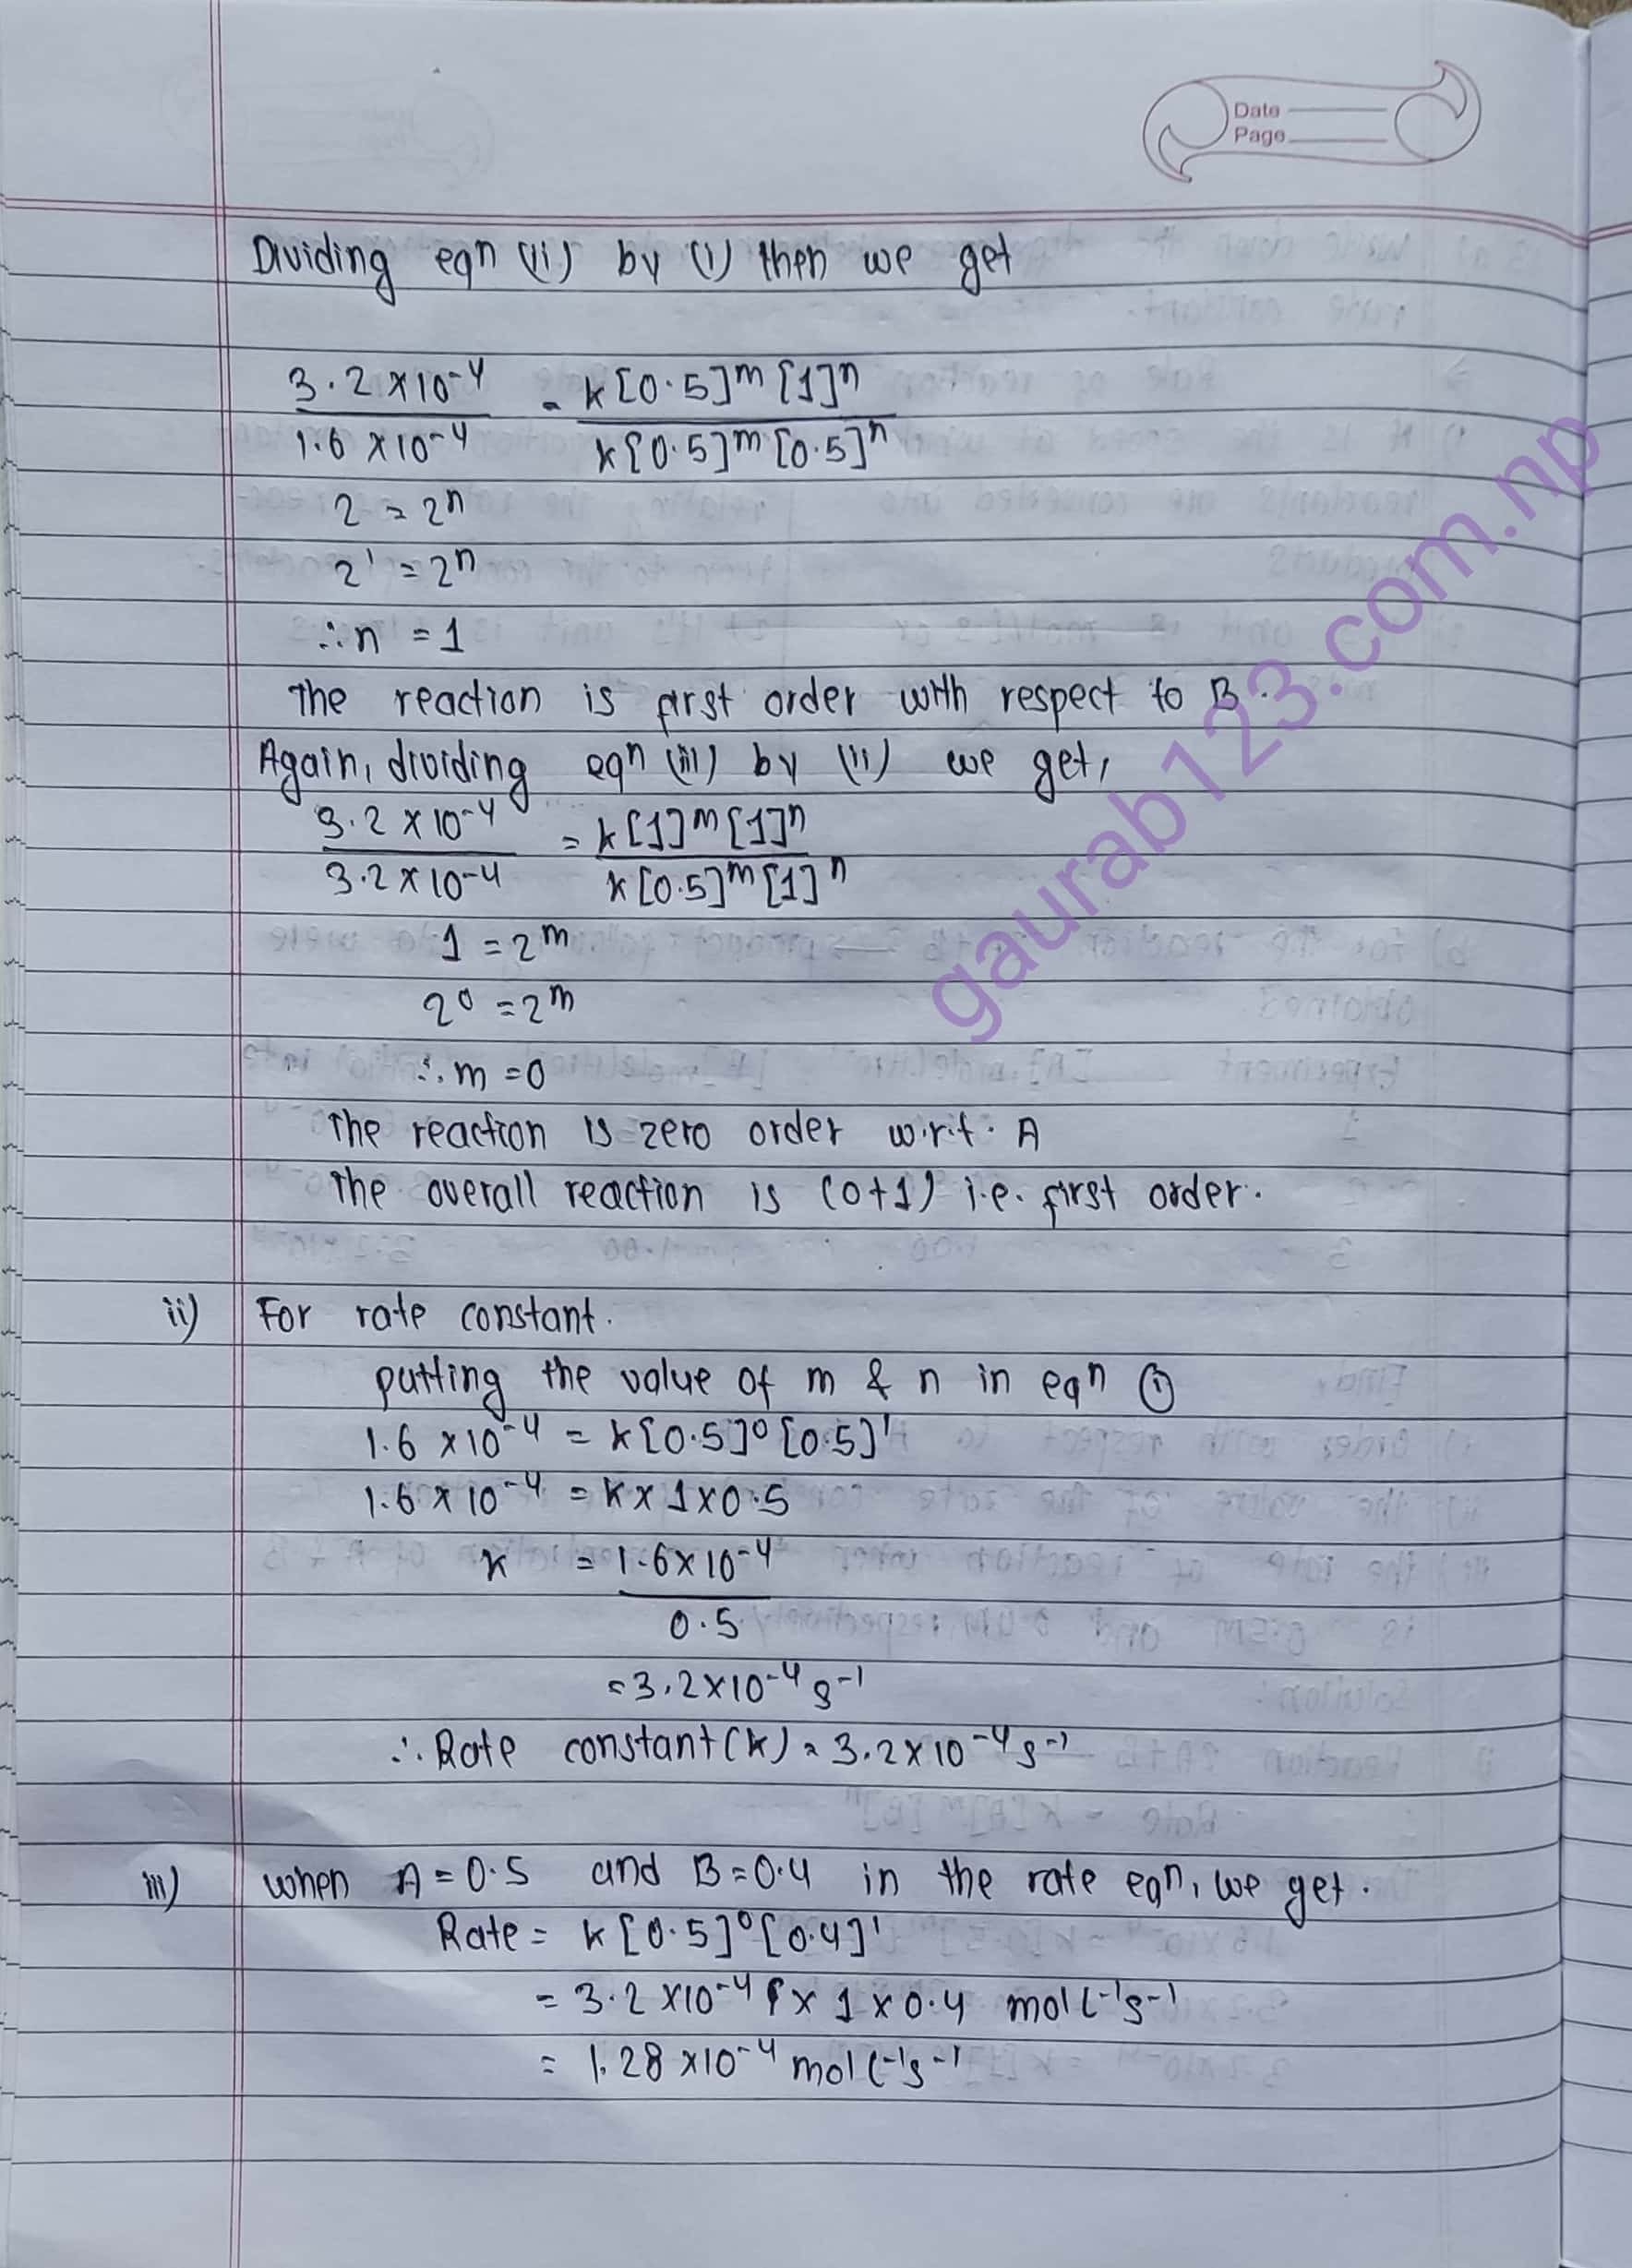 Date
Page
Dividing eqn (ii) by (i) then we get
3.2 x10⁻⁴ = k[0.5]ᵐ[1]ⁿ
1.6 x10⁻⁴ k[0.5]ᵐ[0.5]ⁿ
2 = 2ⁿ
2¹ = 2ⁿ
∴ n = 1
The reaction is first order with respect to B.
Again, dividing eqn (iii) by (ii) we get,
3.2 x 10⁻⁴ = k[1]ᵐ[1]ⁿ
3.2 x 10⁻⁴ k[0.5]ᵐ[1]ⁿ
1 = 2ᵐ
2⁰ = 2ᵐ
∴ m = 0
The reaction is zero order w.r.t. A
The overall reaction is (0+1) i.e. first order.
ii) For rate constant.
putting the value of m & n in eqn (i)
1.6 x10⁻⁴ = k[0.5]⁰[0.5]¹
1.6 x 10⁻⁴ = k x 1 x 0.5
k = 1.6x10⁻⁴
0.5
= 3.2x10⁻⁴ s⁻¹
∴ Rate constant (k) = 3.2x10⁻⁴ s⁻¹
iii) when A = 0.5 and B = 0.4 in the rate eqn, we get.
Rate = k[0.5]⁰[0.4]¹
= 3.2 x10⁻⁴ x 1 x 0.4 mol L⁻¹s⁻¹
= 1.28 x10⁻⁴ mol L⁻¹s⁻¹
gaurab123.com.np